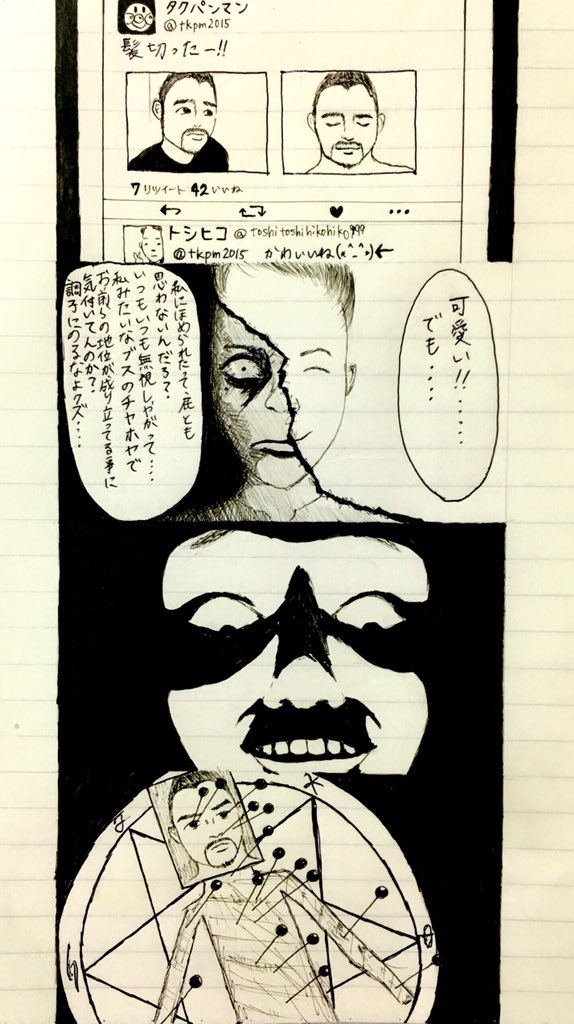 タクパンマン
@tkpm2015
髪切ったー!!
7リツイート 42いいね
トシヒコ @toshitoshihikohiko999
@tkpm2015 かわいいね(*^_^*)←
可愛い!!......
でも....
私にほめられたって、屁とも
思わないんだろ?
いつもいつも無視しやがって....
私みたいなブスのチヤホヤで
お前らの地位が成り立ってる事に
気付いてんのか?
調子にのるなよクズ....